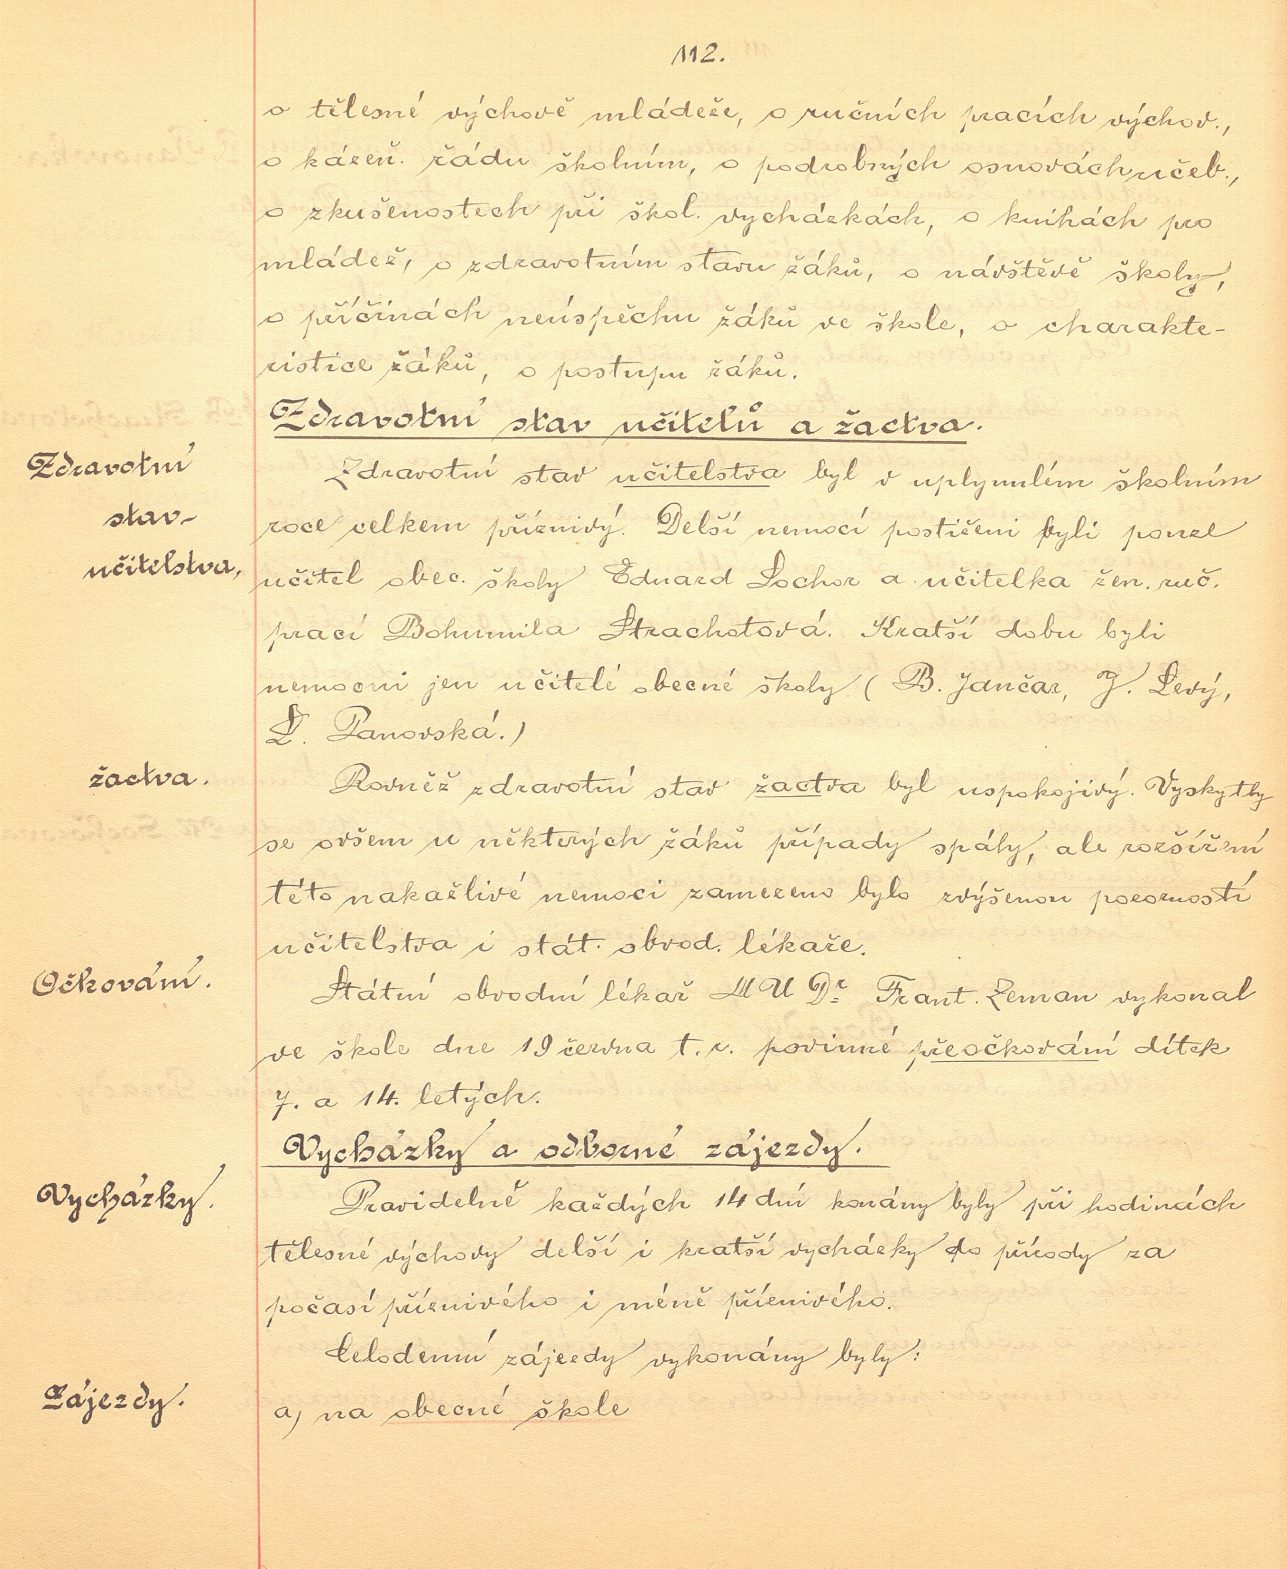 112.
o tělesné výchově mládeže, o ručních pracích výchov.,
o kázeň. řádu školním, o podrobných osnovách učeb.,
o zkušenostech při škol. vycházkách, o knihách pro
mládež, o zdravotním stavu žáků, o návštěvě školy,
o příčinách neúspěchu žáků ve škole, o charakte-
ristice žáků, o postupu žáků.
Zdravotní stav učitelů a žactva.
Zdravotní
stav
učitelstva,
Zdravotní stav učitelstva byl v uplynulém školním
roce celkem příznivý. Delší nemocí postiženi byli pouze
učitel obec. školy Eduard Lochor a učitelka žen. ruč.
prací Bohumila Strachotová. Kratší dobu byli
nemocni jen učitelé obecné školy (B. Jančar, J. Levý,
L. Panovská.)
žactva.
Rovněž zdravotní stav žactva byl uspokojivý. Vyskytly
se ovšem u některých žáků případy spály, ale rozšíření
této nakažlivé nemoci zamezeno bylo zvýšenou pozorností
učitelstva i stát. obvod. lékaře.
Očkování.
Státní obvodní lékař MUDr Frant. Zeman vykonal
ve škole dne 19 června t. r. povinné přeočkování dítek
7. a 14. letých.
Vycházky a odborné zájezdy.
Vycházky.
Pravidelně každých 14 dní konány byly při hodinách
tělesné výchovy delší i kratší vycházky do přírody za
počasí příznivého i méně příznivého.
Celodenní zájezdy vykonány byly:
Zájezdy.
a) na obecné škole